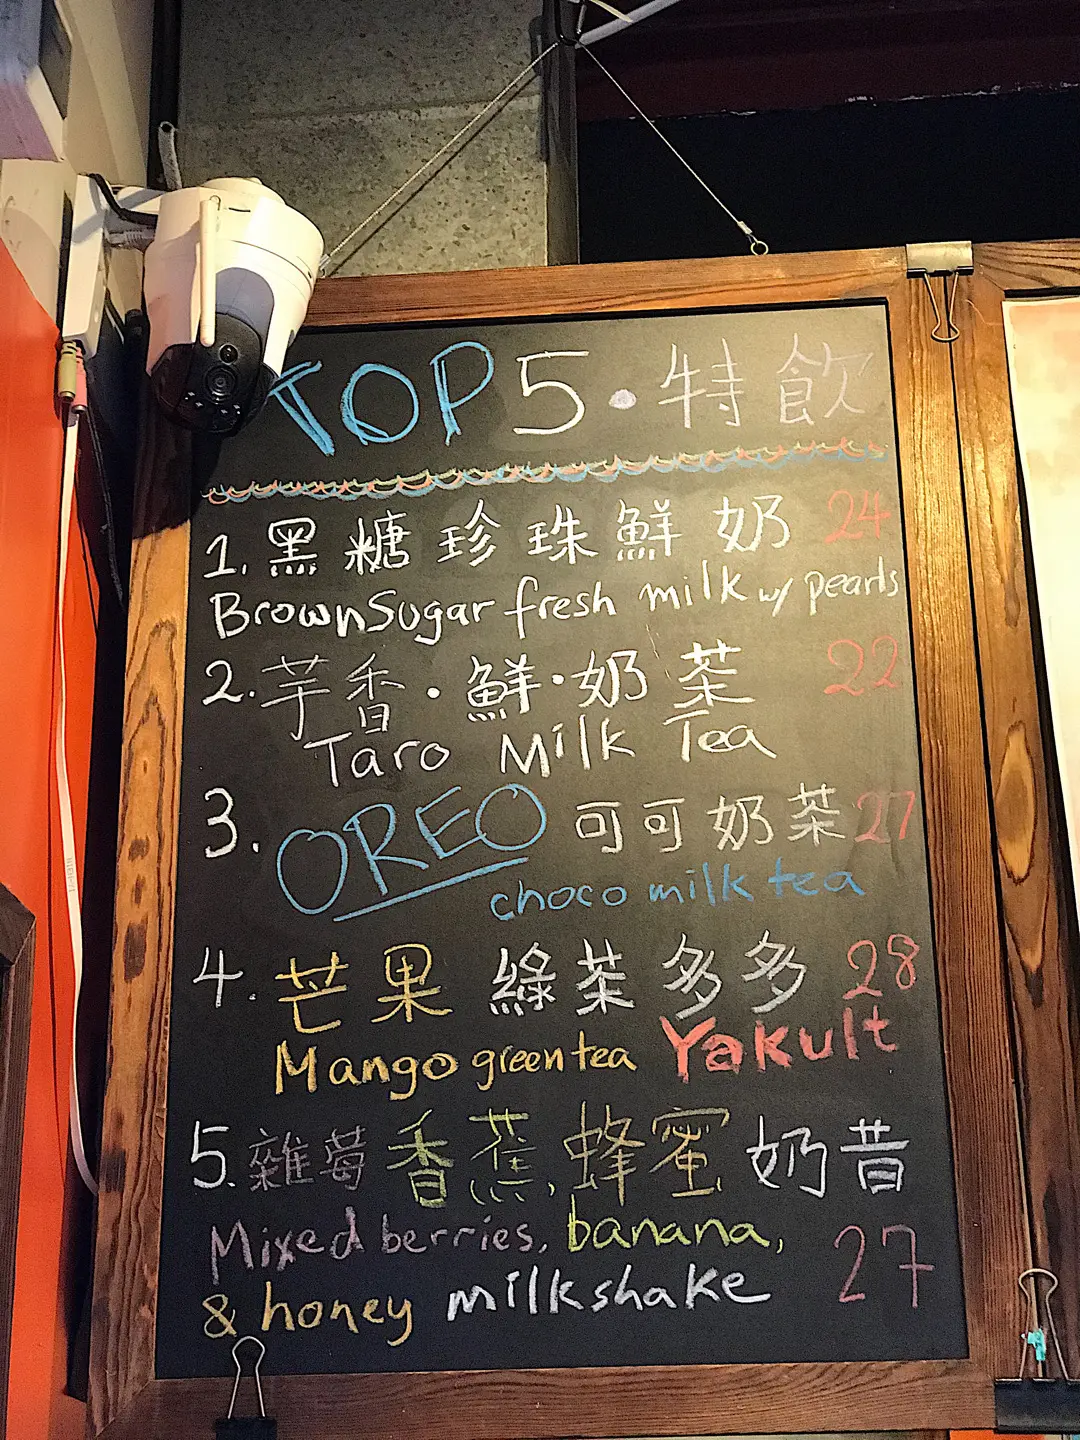 TOP 5 · 特飲
1. 黑糖珍珠鮮奶 24
Brown Sugar fresh milk w/ pearls
2. 芋香·鮮·奶茶 22
Taro Milk Tea
3. OREO 可可奶茶 27
choco milk tea
4. 芒果 綠茶多多 28
Mango green tea Yakult
5. 雜莓香蕉,蜂蜜奶昔
Mixed berries, banana,
& honey milkshake 27